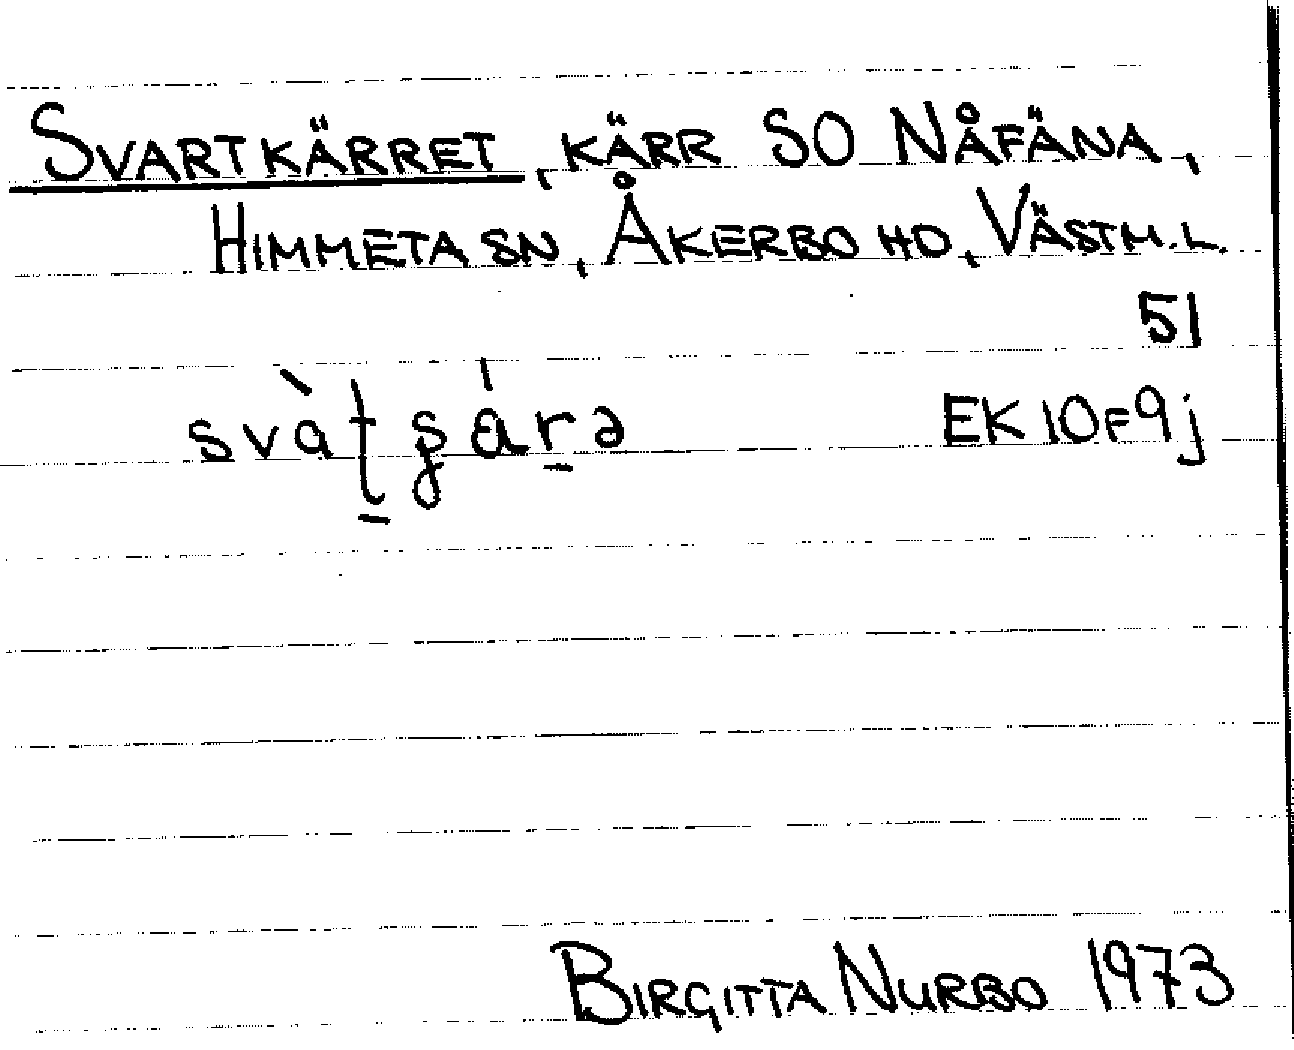 SVARTKÄRRET, KÄRR SO NÅFÄNA,
HIMMETA SN, ÅKERBO HD, VÄSTM.L.
51
EK10F9j
BIRGITTA NURBO 1973